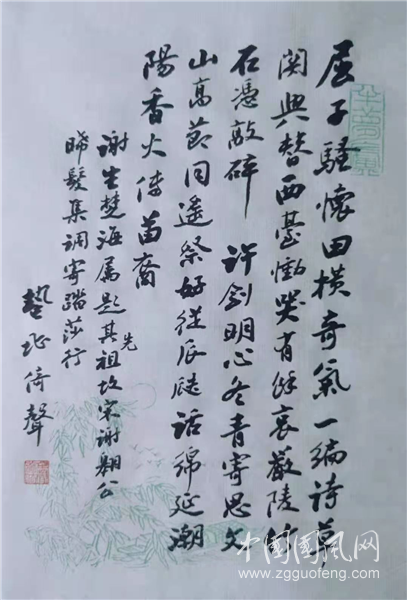 屈子騷懷田橫奇氣一編詩草
関興替西臺慟哭有餘哀嚴陵竹
石憑敲碎 許劍明心冬青寄思文
山高節同遙祭好從瓜瓞話綿延潮
陽香火傳苗裔
謝生楚海属題其先祖故宋謝翱公
晞髮集調寄踏莎行
倚聲
中國國風网
www.zgguofeng.com